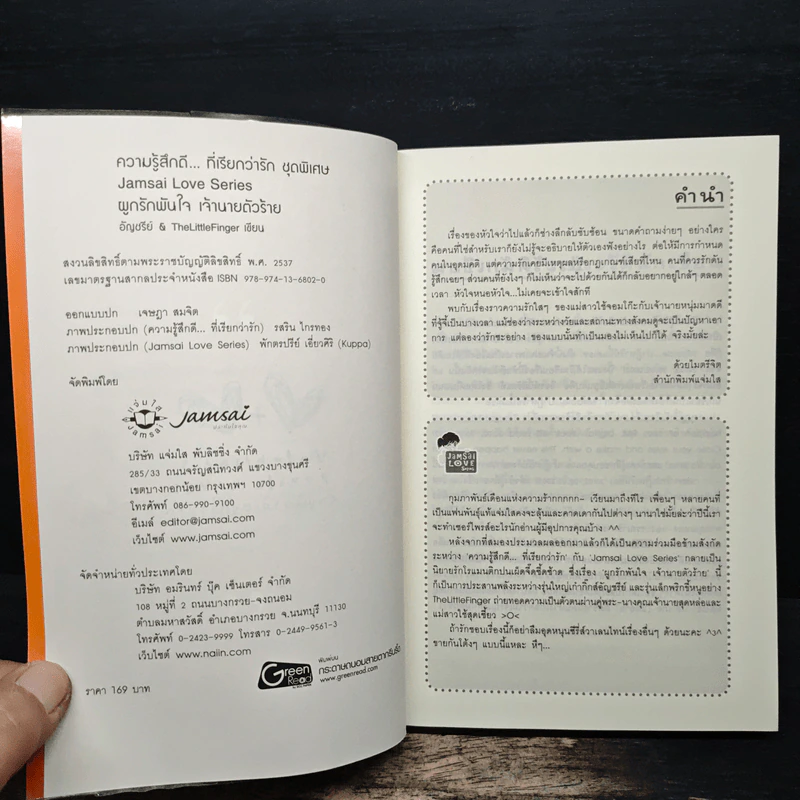 ความรู้สึกดี... ที่เรียกว่ารัก ชุดพิเศษ
Jamsai Love Series
ผูกรักพันใจ เจ้านายตัวร้าย
อัญชรีย์ & TheLittleFinger เขียน
สงวนลิขสิทธิ์ตามพระราชบัญญัติลิขสิทธิ์ พ.ศ. 2537
เลขมาตรฐานสากลประจำหนังสือ ISBN 978-974-13-6802-0
ออกแบบปก เจษฎา สมจิต
ภาพประกอบปก (ความรู้สึกดี... ที่เรียกว่ารัก) รสริน ไกรทอง
ภาพประกอบปก (Jamsai Love Series) พักตรปรีย์ เอี่ยวศิริ (Kuppa)
จัดพิมพ์โดย
แจ่มใส
Jamsai
Jamsai
บริษัท แจ่มใส พับลิชชิ่ง จำกัด
285/33 ถนนจรัญสนิทวงศ์ แขวงบางขุนศรี
เขตบางกอกน้อย กรุงเทพฯ 10700
โทรศัพท์ 086-990-9100
อีเมล์ editor@jamsai.com
เว็บไซต์ www.jamsai.com
จัดจำหน่ายทั่วประเทศโดย
บริษัท อมรินทร์ บุ๊ค เซ็นเตอร์ จำกัด
108 หมู่ที่ 2 ถนนบางกรวย-จงถนอม
ตำบลมหาสวัสดิ์ อำเภอบางกรวย จ.นนทบุรี 11130
โทรศัพท์ 0-2423-9999 โทรสาร 0-2449-9561-3
เว็บไซต์ www.naiin.com
ราคา 169 บาท
Green Read
พิมพ์บน
กระดาษถนอมสายตากรีนรี้ด
www.greenread.com
คำนำ
เรื่องของหัวใจว่าไปแล้วก็ช่างลึกลับซับซ้อน ขนาดคำถามง่ายๆ อย่างใคร
คือคนที่ใช่สำหรับเราก็ยังไม่รู้จะอธิบายให้ตัวเองฟังอย่างไร ต่อให้มีการกำหนด
คนในอุดมคติ แต่ความรักเคยมีเหตุผลหรือกฎเกณฑ์เสียที่ไหน คนที่ควรรักดัน
รู้สึกเฉยๆ ส่วนคนที่ยังไงๆ ก็ไม่เห็นว่าจะไปด้วยกันได้ก็กลับอยากอยู่ใกล้ๆ ตลอด
เวลา หัวใจหนอหัวใจ...ไม่เคยจะเข้าใจสักที
พบกับเรื่องราวความรักใสๆ ของแม่สาวใช้จอมโก๊ะกับเจ้านายหนุ่มมาดดี
ที่จู้จี้เป็นบางเวลา แม้ช่องว่างระหว่างวัยและสถานะทางสังคมดูจะเป็นปัญหาเอา
การ แต่ลองว่ารักซะอย่าง ของแบบนั้นทำเป็นมองไม่เห็นไปก็ได้ จริงมั้ยล่ะ
ด้วยไมตรีจิต
สำนักพิมพ์แจ่มใส
JAMSAI
LOVE
Series
กุมภาพันธ์เดือนแห่งความร้ากกกกก~ เวียนมาถึงทีไร เพื่อนๆ หลายคนที่
เป็นแฟนพันธุ์แท้แจ่มใสคงจะลุ้นและคาดเดากันไปต่างๆ นานาใช่มั้ยล่ะว่าปีนี้เรา
จะทำเซอร์ไพรส์อะไรนักอ่านผู้มีอุปการคุณบ้าง ^^
หลังจากที่สมองประมวลผลออกมาแล้วก็ได้เป็นความร่วมมือข้ามสังกัด
ระหว่าง 'ความรู้สึกดี... ที่เรียกว่ารัก' กับ 'Jamsai Love Series' กลายเป็น
นิยายรักโรแมนติกปนเผ็ดจี๊ดซี้ดซ้าด ซึ่งเรื่อง 'ผูกรักพันใจ เจ้านายตัวร้าย' นี้
ก็เป็นการประสานพลังระหว่างรุ่นใหญ่เก๋ากิ๊กส์อัญชรีย์ และรุ่นเล็กพริกขี้หนูอย่าง
TheLittleFinger ถ่ายทอดความเป็นตัวตนผ่านคู่พระ-นางคุณเจ้านายสุดหล่อและ
แม่สาวใช้สุดเซี้ยว >O<
ถ้ารักชอบเรื่องนี้ก็อย่าลืมอุดหนุนซีรี่ส์วาเลนไทน์เรื่องอื่นๆ ด้วยนะคะ ^3^
ขายกันโต้งๆ แบบนี้แหละ หึๆ...